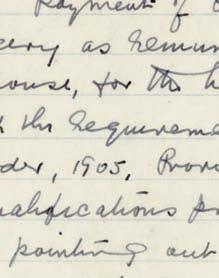 Payment of
as remun
ouse, for the h
the requireme
der, 1905, Prov
alifications p
pointing out